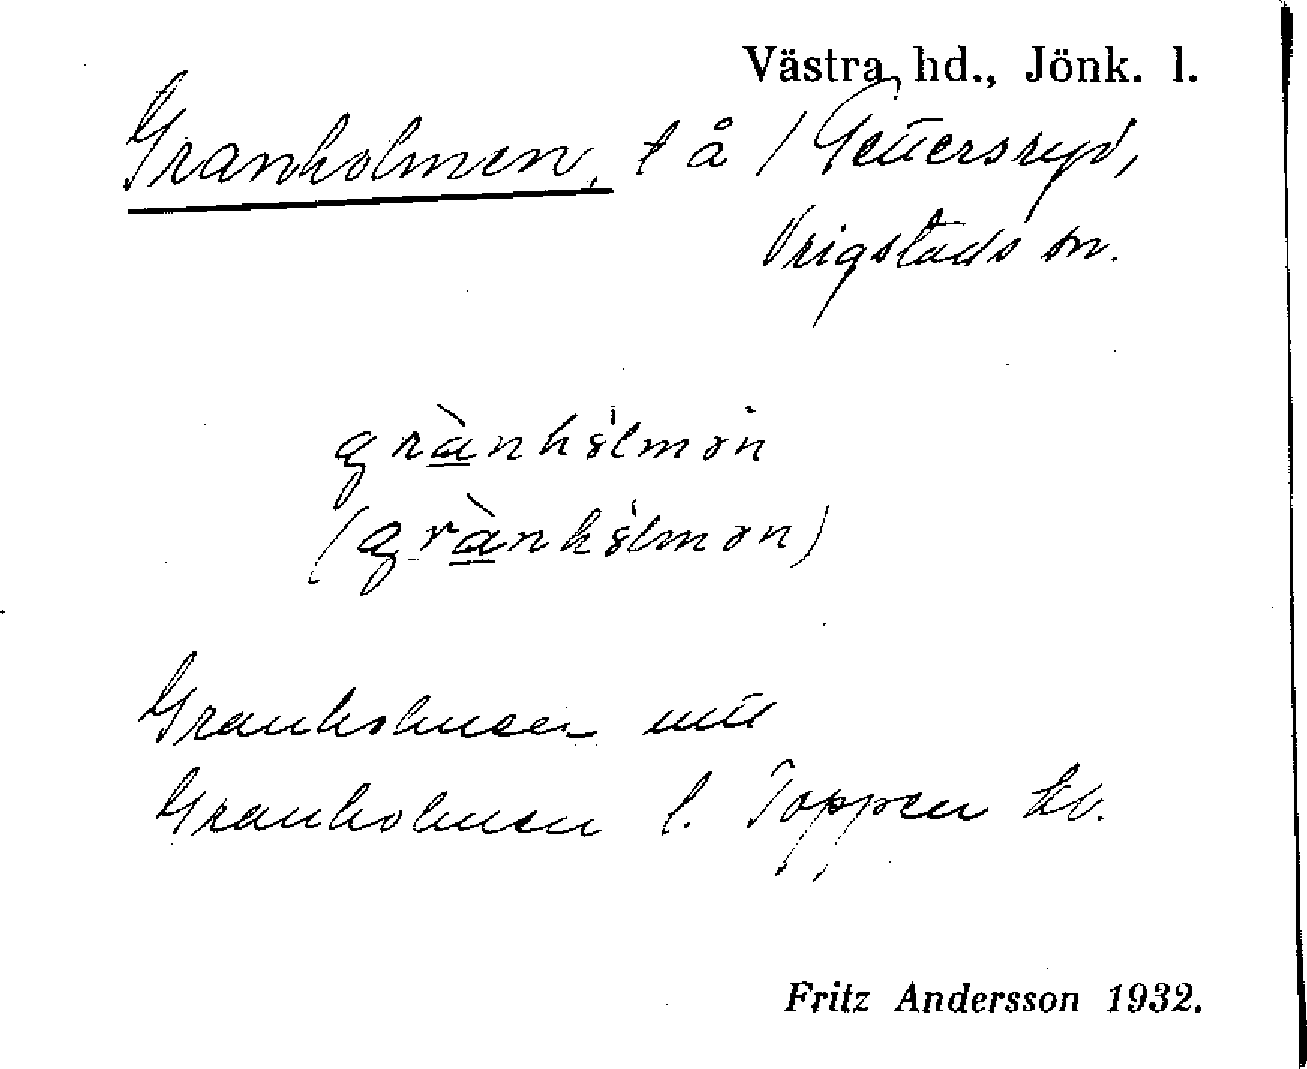 Västra hd., Jönk. l.
Granholmen, t å / Getersryd,
Vrigstads sn.
grànhólmən
(grànhólmən)
Granholmen
Granholmen l. Toppen
Fritz Andersson 1932.